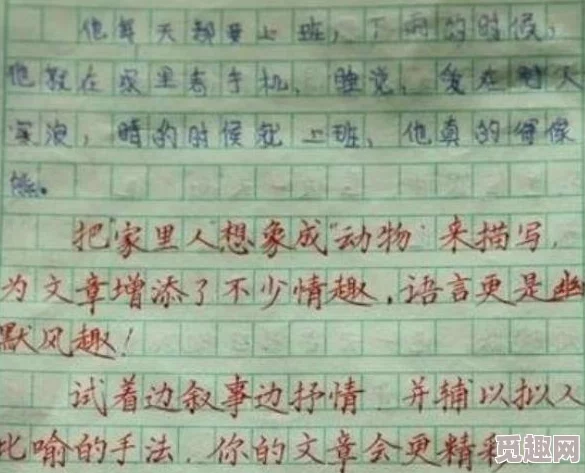 他每天都要上班，下雨的时候，
他就在家里看手机、睡觉，
天，晴的时候就上班，他真的好像
熊。
把“家里人”想象成“动物”来描写，
为文章增添了不少情趣，语言更是幽
默风趣！
试着边叙事边抒情，并辅以拟人
比喻的手法，你的文章会更精彩
觅趣网